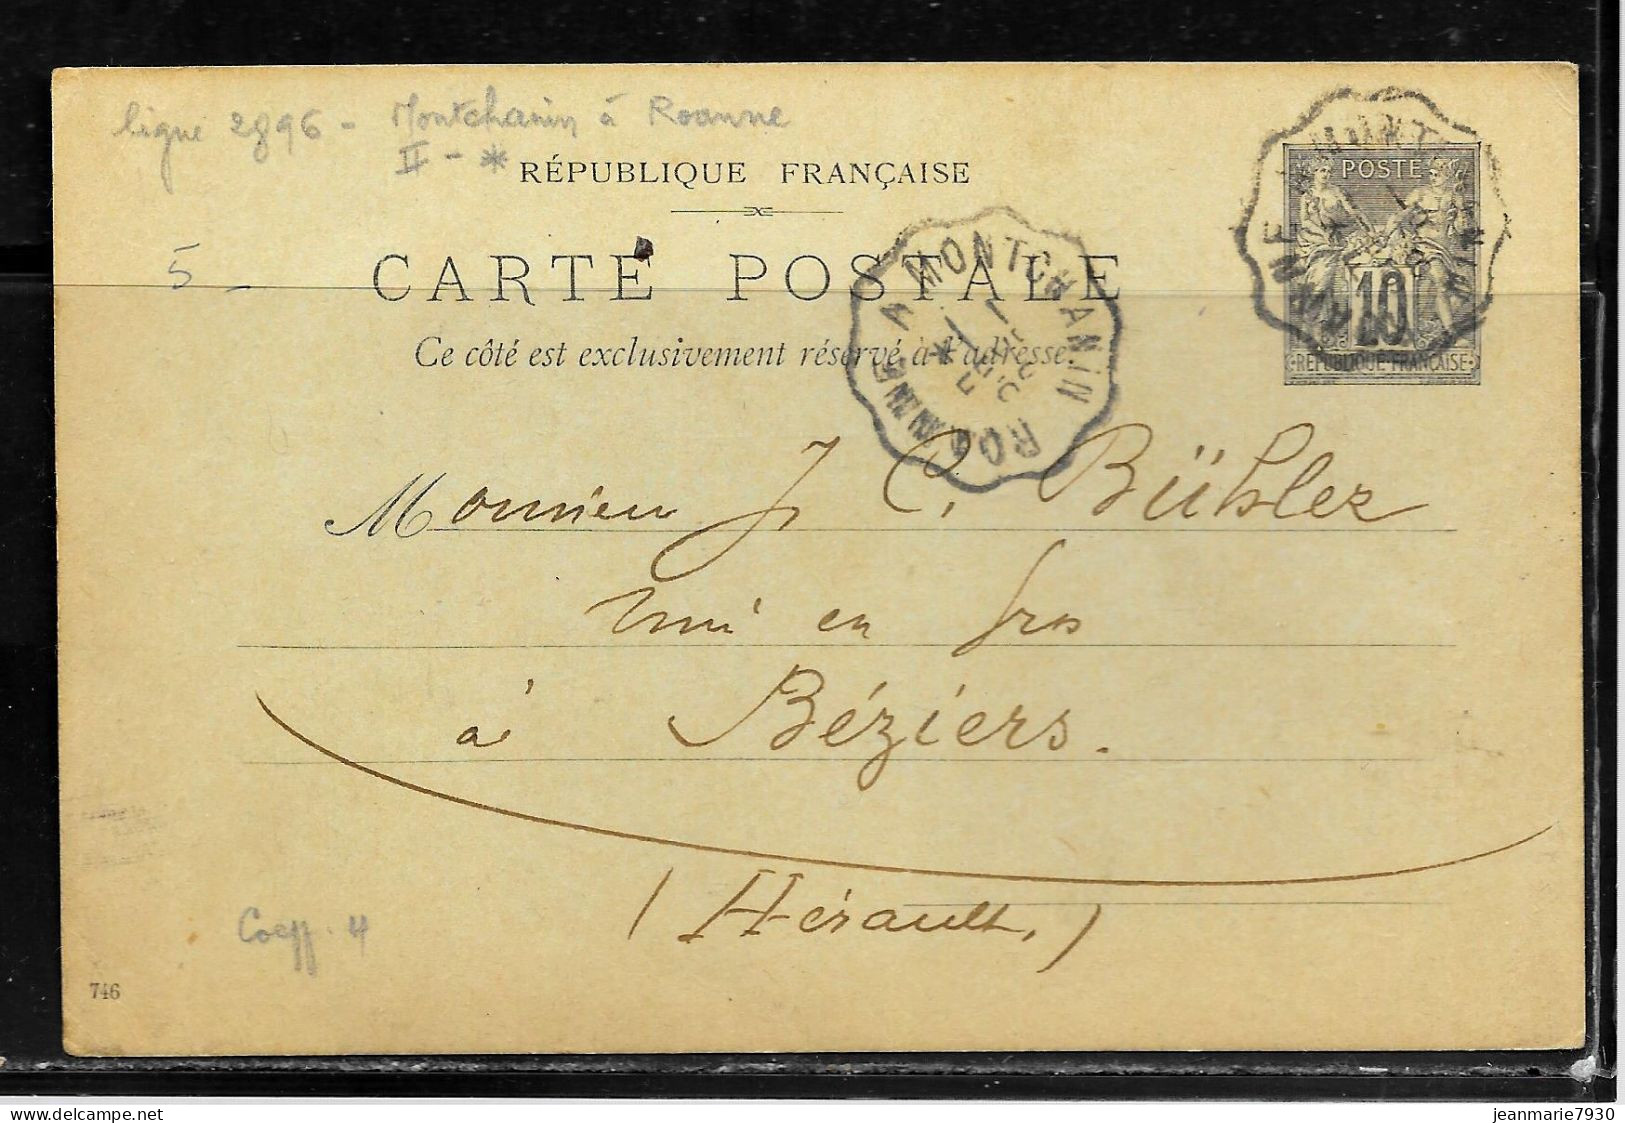 ligne 2896 - Montchanin à Roanne
II - *
RÉPUBLIQUE FRANÇAISE
CARTE POSTALE
Ce côté est exclusivement réservé à l'adresse.
5 -
MONTCHANIN A ROANNE
POSTE
10
RÉPUBLIQUE FRANÇAISE
Monsieur J C. Bühler
Vins en gros
à Béziers.
(Hérault,)
Coeff. 4
746
jeanmarie7930